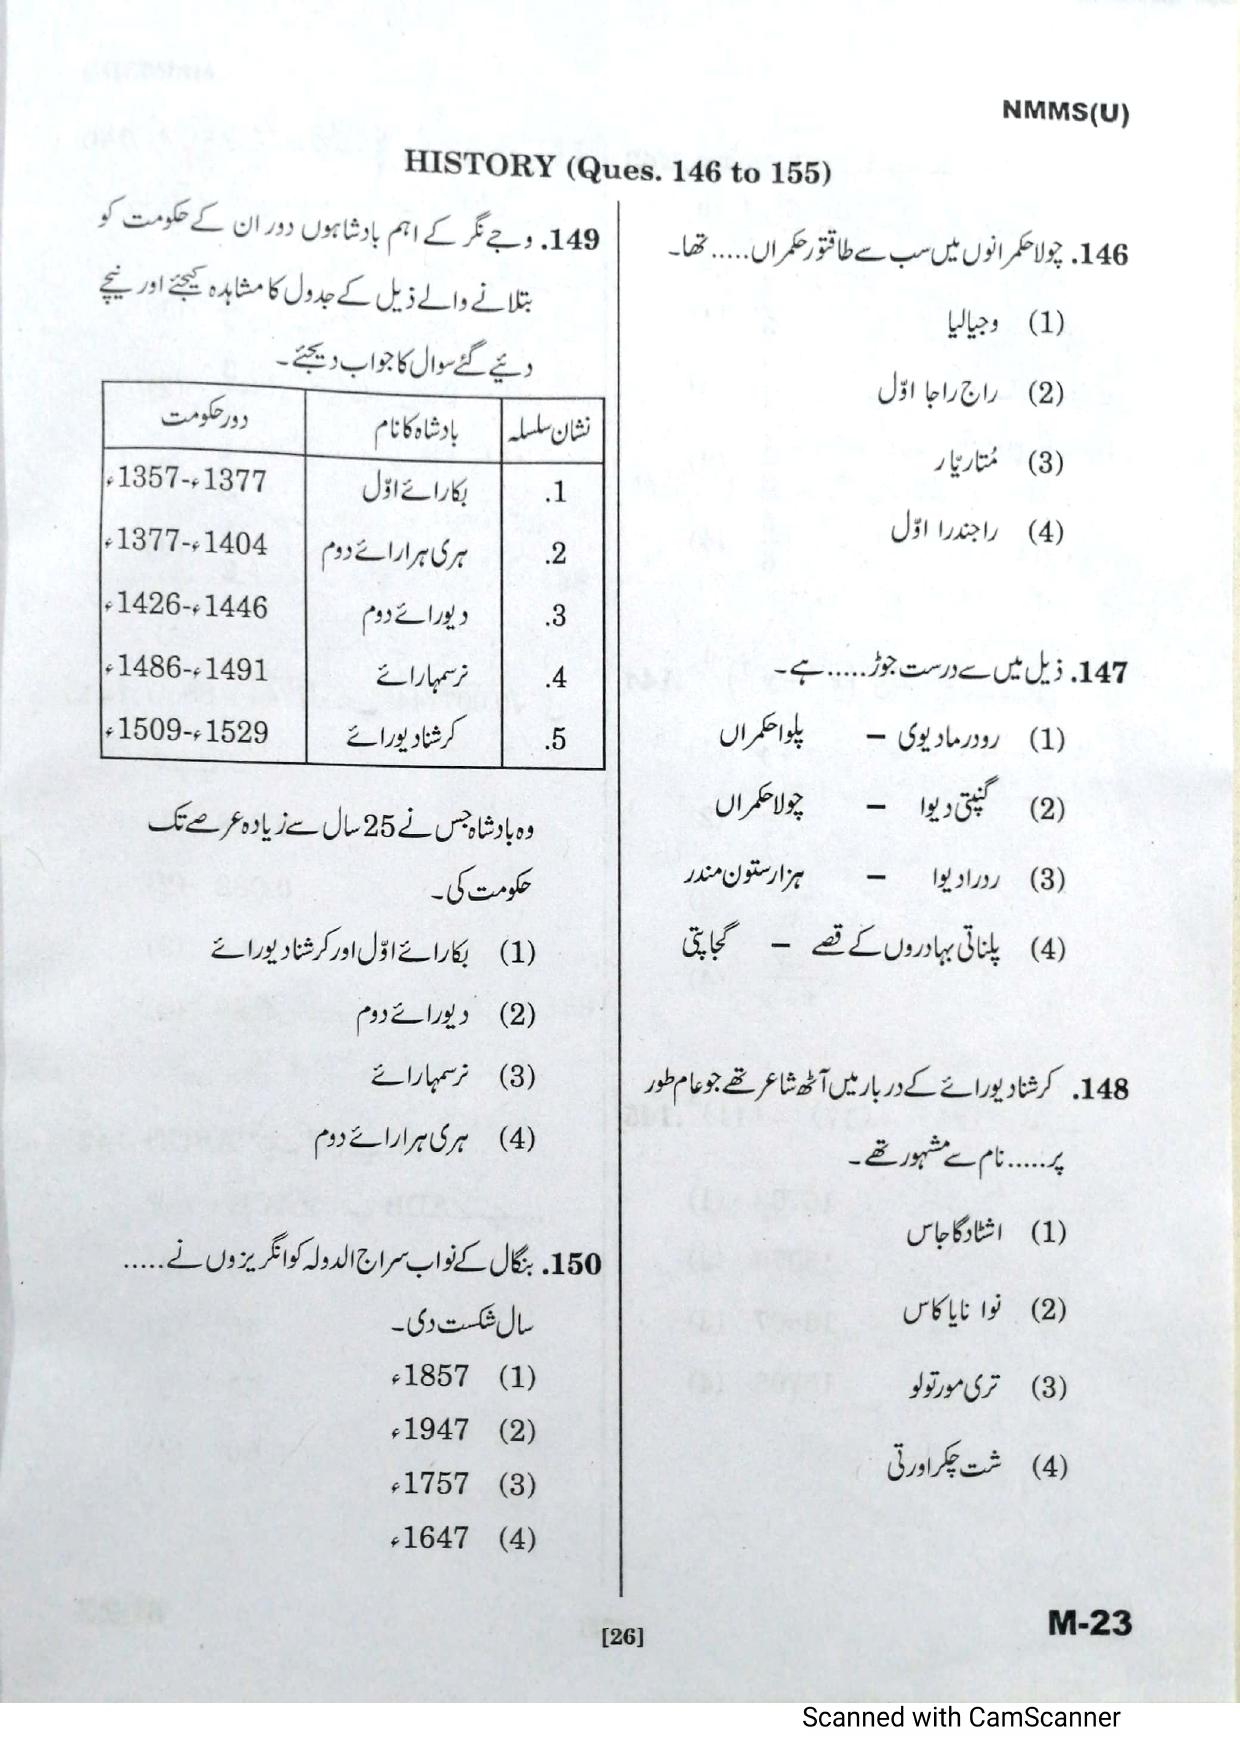 NMMS(U)
HISTORY (Ques. 146 to 155)
146. چولا حکمرانوں میں سب سے طاقتور حکمراں ..... تھا۔
(1) وجیالیا
(2) راج راجا اوّل
(3) مُتاریّار
(4) راجندرا اوّل
147. ذیل میں سے درست جوڑ ..... ہے۔
(1) رودرمادیوی – پلوا حکمراں
(2) گنپتی دیوا – چولا حکمراں
(3) ردرادیوا – ہزار ستون مندر
(4) پلناتی بہادروں کے قصے – گجاپتی
148. کرشنا دیورائے کے دربار میں آٹھ شاعر تھے جو عام طور
پر ..... نام سے مشہور تھے۔
(1) اشٹادگاجاس
(2) نوا نایاکاس
(3) تری مورتولو
(4) شت چکراورتی
149. وجے نگر کے اہم بادشاہوں دور ان کے حکومت کو
بتلانے والے ذیل کے جدول کا مشاہدہ کیجئے اور نیچے
دیئے گئے سوال کا جواب دیجئے۔
نشان سلسلہ بادشاہ کا نام دور حکومت
1. بکارائے اوّل 1357ء-1377ء
2. ہری ہرارائے دوم 1377ء-1404ء
3. دیورائے دوم 1426ء-1446ء
4. نرسمہارائے 1486ء-1491ء
5. کرشنادیورائے 1509ء-1529ء
وہ بادشاہ جس نے 25 سال سے زیادہ عرصے تک
حکومت کی۔
(1) بکارائے اوّل اور کرشنادیورائے
(2) دیورائے دوم
(3) نرسمہارائے
(4) ہری ہرارائے دوم
150. بنگال کے نواب سراج الدولہ کو انگریزوں نے .....
سال شکست دی۔
(1) 1857ء
(2) 1947ء
(3) 1757ء
(4) 1647ء
[26]
M-23
Scanned with CamScanner